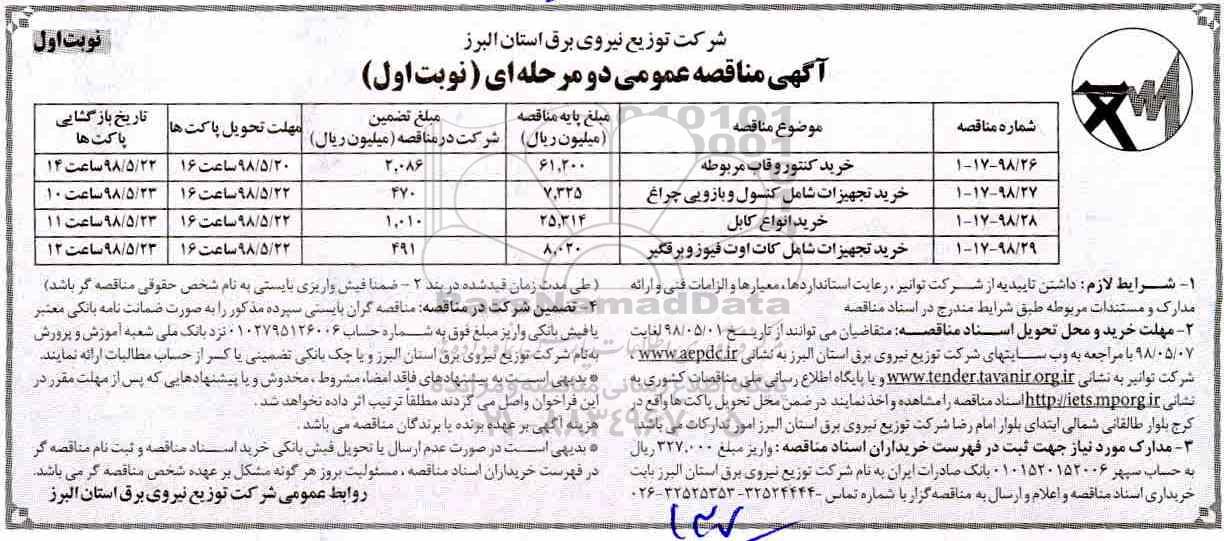 نوبت اول
شرکت توزیع نیروی برق استان البرز
آگهی مناقصه عمومی دو مرحله ای (نوبت اول)
شماره مناقصه | موضوع مناقصه | مبلغ پایه مناقصه (میلیون ریال) | مبلغ تضمین شرکت در مناقصه (میلیون ریال) | مهلت تحویل پاکت ها | تاریخ بازگشایی پاکت ها
۱-۱۷-۹۸/۲۶ | خرید کنتور و قاب مربوطه | ۶۱,۲۰۰ | ۲,۰۸۶ | ۹۸/۵/۲۰ساعت ۱۶ | ۹۸/۵/۲۲ساعت ۱۴
۱-۱۷-۹۸/۲۷ | خرید تجهیزات شامل کنسول و بازویی چراغ | ۷,۳۲۵ | ۴۷۰ | ۹۸/۵/۲۲ساعت ۱۶ | ۹۸/۵/۲۳ساعت ۱۰
۱-۱۷-۹۸/۲۸ | خرید انواع کابل | ۲۵,۳۱۴ | ۱,۰۱۰ | ۹۸/۵/۲۲ساعت ۱۶ | ۹۸/۵/۲۳ساعت ۱۱
۱-۱۷-۹۸/۲۹ | خرید تجهیزات شامل کات اوت فیوز و برقگیر | ۸,۰۲۰ | ۴۹۱ | ۹۸/۵/۲۲ساعت ۱۶ | ۹۸/۵/۲۳ساعت ۱۲
۱- شرایط لازم: داشتن تاییدیه از شرکت توانیر، رعایت استانداردها، معیارها و الزامات فنی و ارائه
مدارک و مستندات مربوطه طبق شرایط مندرج در اسناد مناقصه
۲- مهلت خرید و محل تحویل اسناد مناقصه: متقاضیان می توانند از تاریخ ۹۸/۰۵/۰۱ لغایت
۹۸/۰۵/۰۷ با مراجعه به وب سایتهای شرکت توزیع نیروی برق استان البرز به نشانی www.aepdc.ir ،
شرکت توانیر به نشانی www.tender.tavanir.org.ir و یا پایگاه اطلاع رسانی ملی مناقصات کشوری به
نشانی http://iets.mporg.ir اسناد مناقصه را مشاهده و اخذ نمایند در ضمن محل تحویل پاکت ها واقع در
کرج بلوار طالقانی شمالی ابتدای بلوار امام رضا شرکت توزیع نیروی برق استان البرز امور تدارکات می باشد.
۳- مدارک مورد نیاز جهت ثبت در فهرست خریداران اسناد مناقصه: واریز مبلغ ۳۲۷,۰۰۰ ریال
به حساب سپهر ۰۱۰۱۵۲۰۱۵۲۰۰۶ بانک صادرات ایران به نام شرکت توزیع نیروی برق استان البرز بابت
خریداری اسناد مناقصه و اعلام و ارسال به مناقصه گزار با شماره تماس ۳۲۵۲۴۴۴۴-۳۲۵۲۵۳۵۳-۰۲۶
(طی مدت زمان قید شده در بند ۲ - ضمنا فیش واریزی بایستی به نام شخص حقوقی مناقصه گر باشد)
۴- تضمین شرکت در مناقصه: مناقصه گران بایستی سپرده مذکور را به صورت ضمانت نامه بانکی معتبر
یا فیش بانکی واریز مبلغ فوق به شماره حساب ۰۱۰۲۷۹۵۱۲۶۰۰۶ نزد بانک ملی شعبه آموزش و پرورش
به نام شرکت توزیع نیروی برق استان البرز و یا چک بانکی تضمینی یا کسر از حساب مطالبات ارائه نمایند.
* بدیهی است به پیشنهادهای فاقد امضا، مشروط، مخدوش و یا پیشنهادهایی که پس از مهلت مقرر در
این فراخوان واصل می گردند مطلقا ترتیب اثر داده نخواهد شد.
هزینه آگهی بر عهده برنده یا برندگان مناقصه می باشد.
* بدیهی است در صورت عدم ارسال یا تحویل فیش بانکی خرید اسناد مناقصه و ثبت نام مناقصه گر
در فهرست خریداران اسناد مناقصه، مسئولیت بروز هر گونه مشکل بر عهده شخص مناقصه گر می باشد.
روابط عمومی شرکت توزیع نیروی برق استان البرز
ParsNamadData